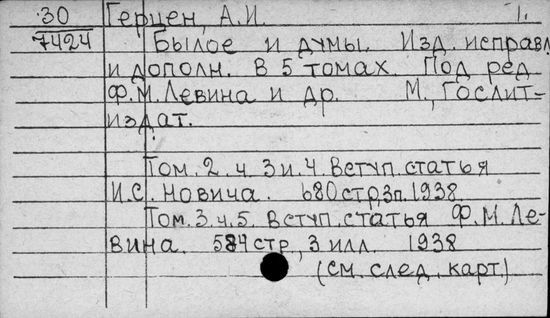 30 Герцен, А.И. 1.
7424 Былое и думы. Изд. исправл
и дополн. В 5 томах. Под ред
Ф.М. Левина и др. М., Гослит-
издат.
Том. 2. ч. 3 и. 4. Вступ. статья
И.С. Новича. 680 стр, 3п. 1938
Том. 3. ч. 5. Вступ. статья Ф.М. Ле-
вина. 584 стр, 3 илл. 1938
(см. след. карт.)